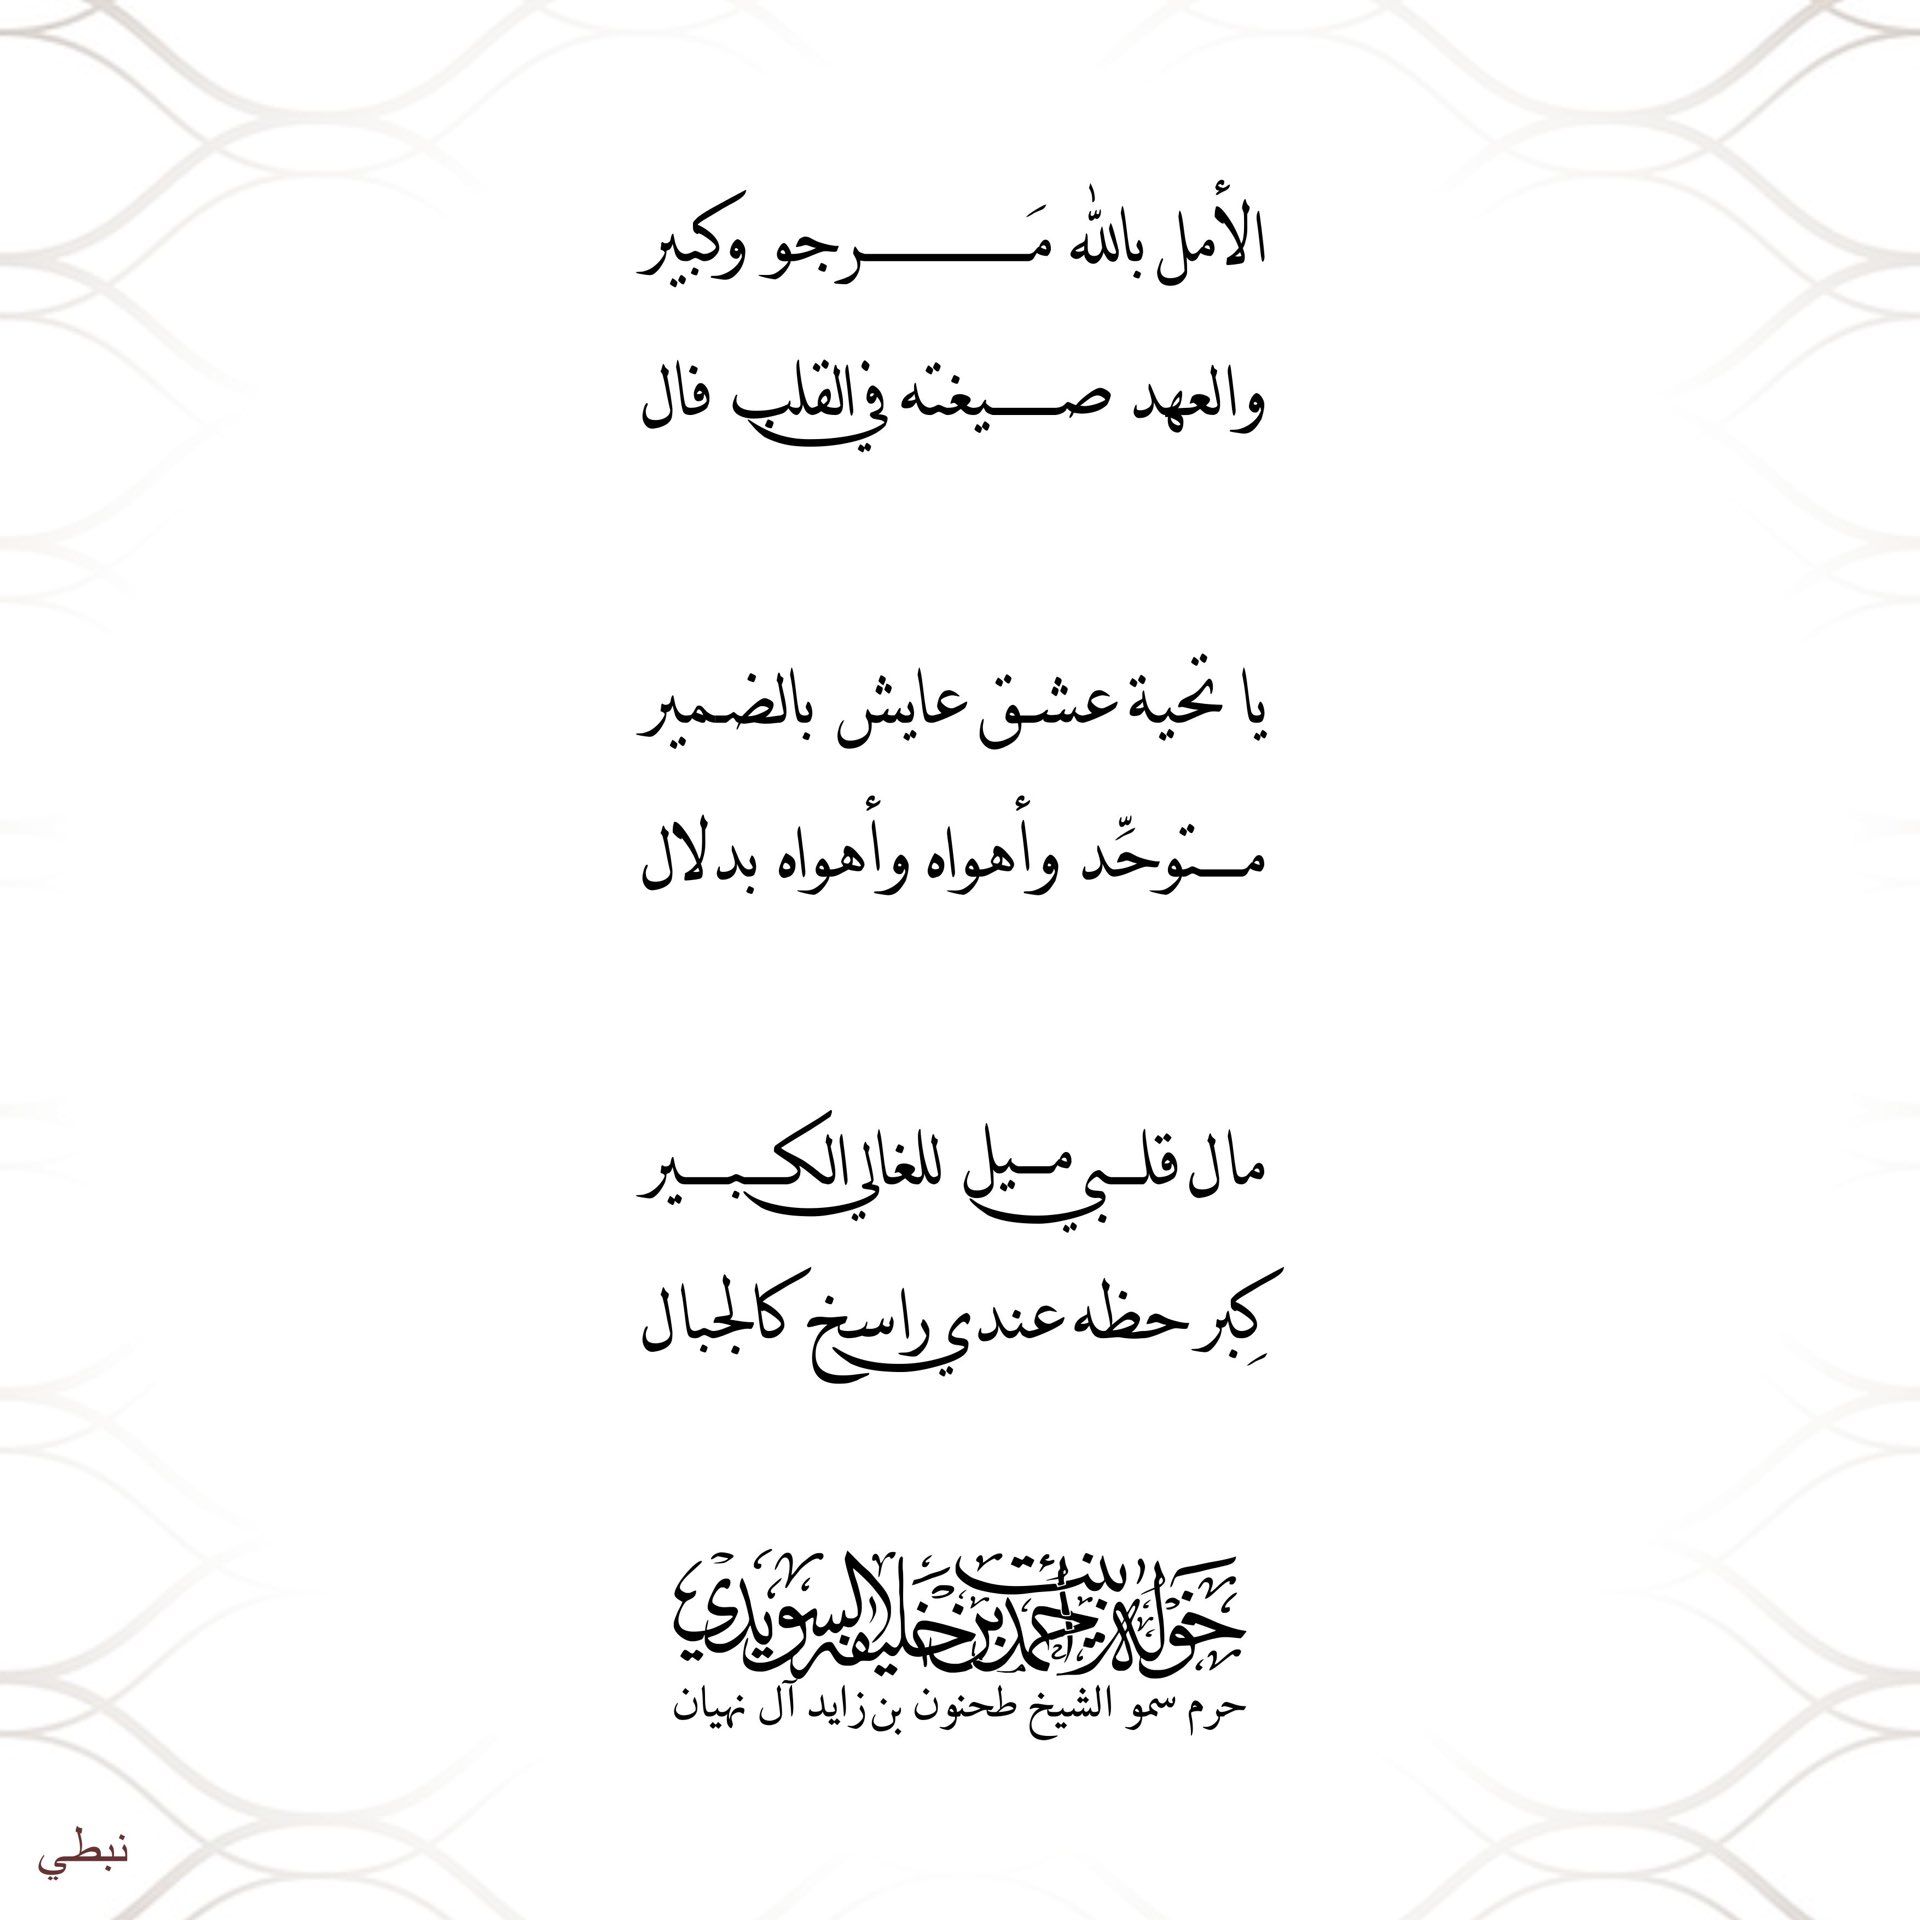 الأمل بالله مَرجو وكبير
والعهد صيغته في القلب فال
يا تحية عشق عايش بالضمير
متوحّد وأهواه وأهواه بدلال
مال قلبي ميل للغالي الكبير
كِبر حظه عندي راسخ كالجبال
خولة بنت أحمد بن خليفة السويدي
حرم سمو الشيخ طحنون بن زايد آل نهيان
نبطي